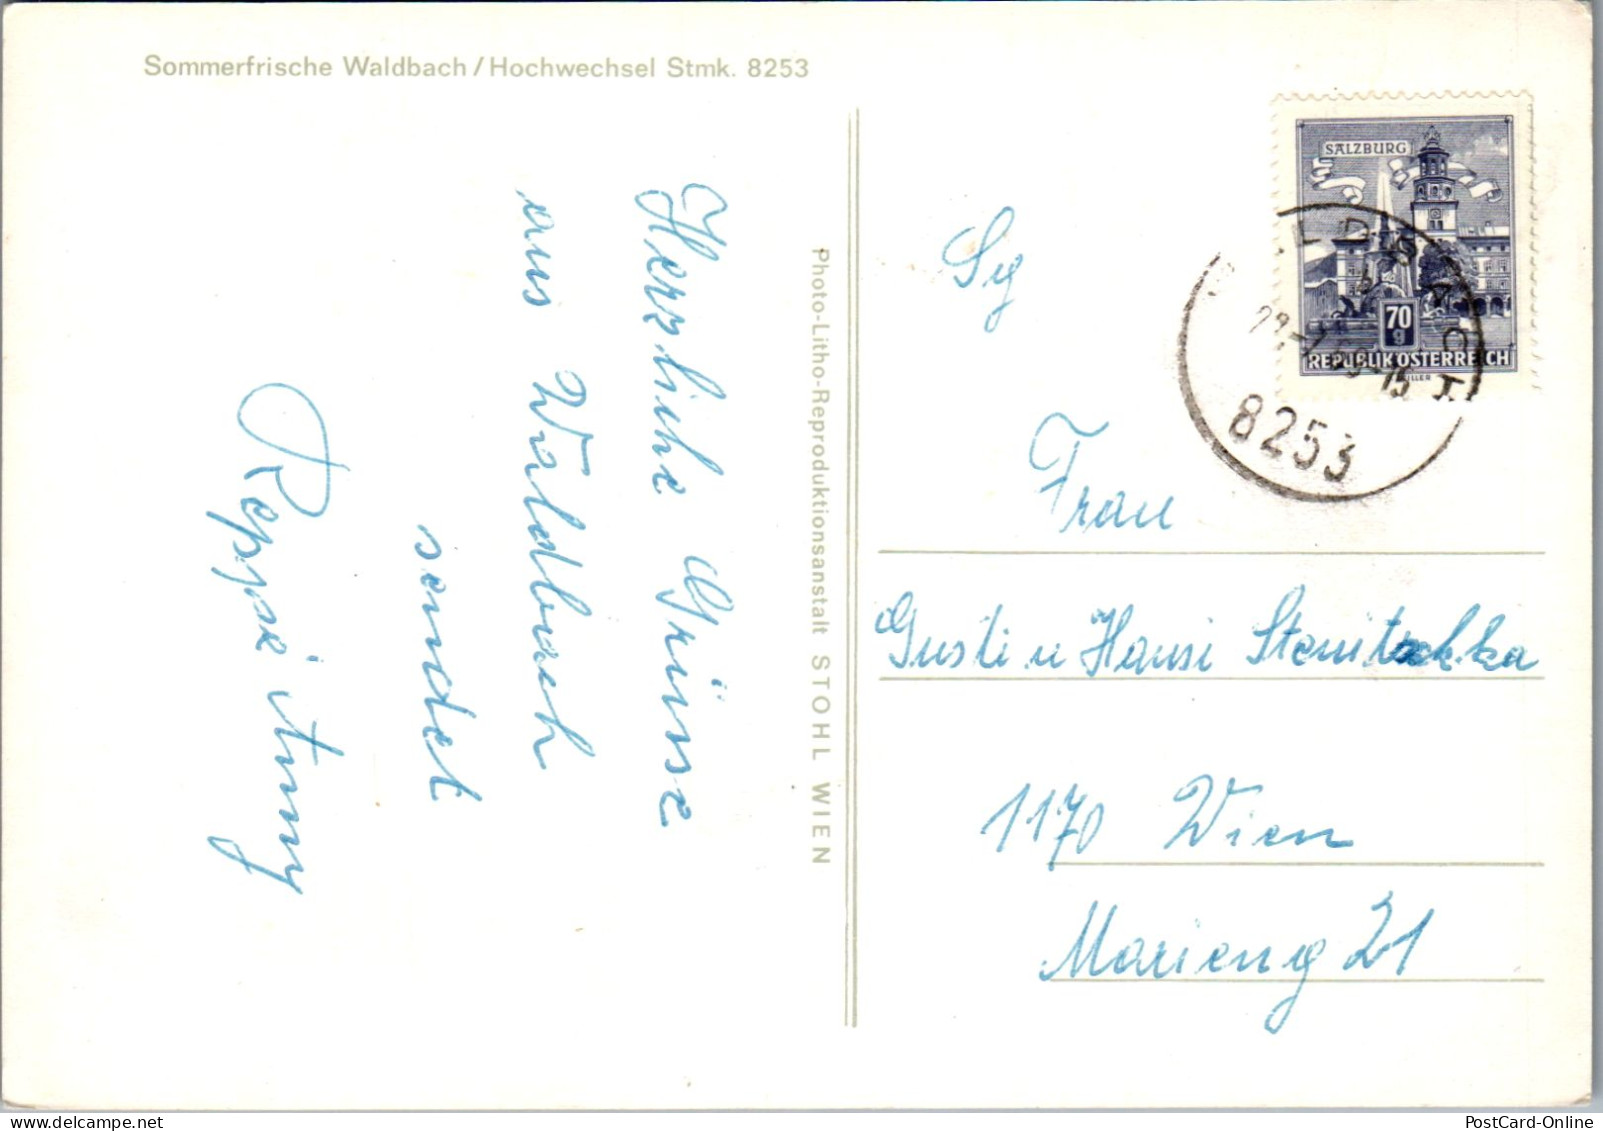 Sommerfrische Waldbach / Hochwechsel Stmk. 8253
Herzliche Grüsse
aus Waldbach
sendet
Photo-Litho-Reproduktionsanstalt STOHL WIEN
SALZBURG
70
g
REPUBLIK ÖSTERREICH
8253
Sg
Frau
Gusti u Hansi
1170 Wien
Marieng 21
PostCard-Online